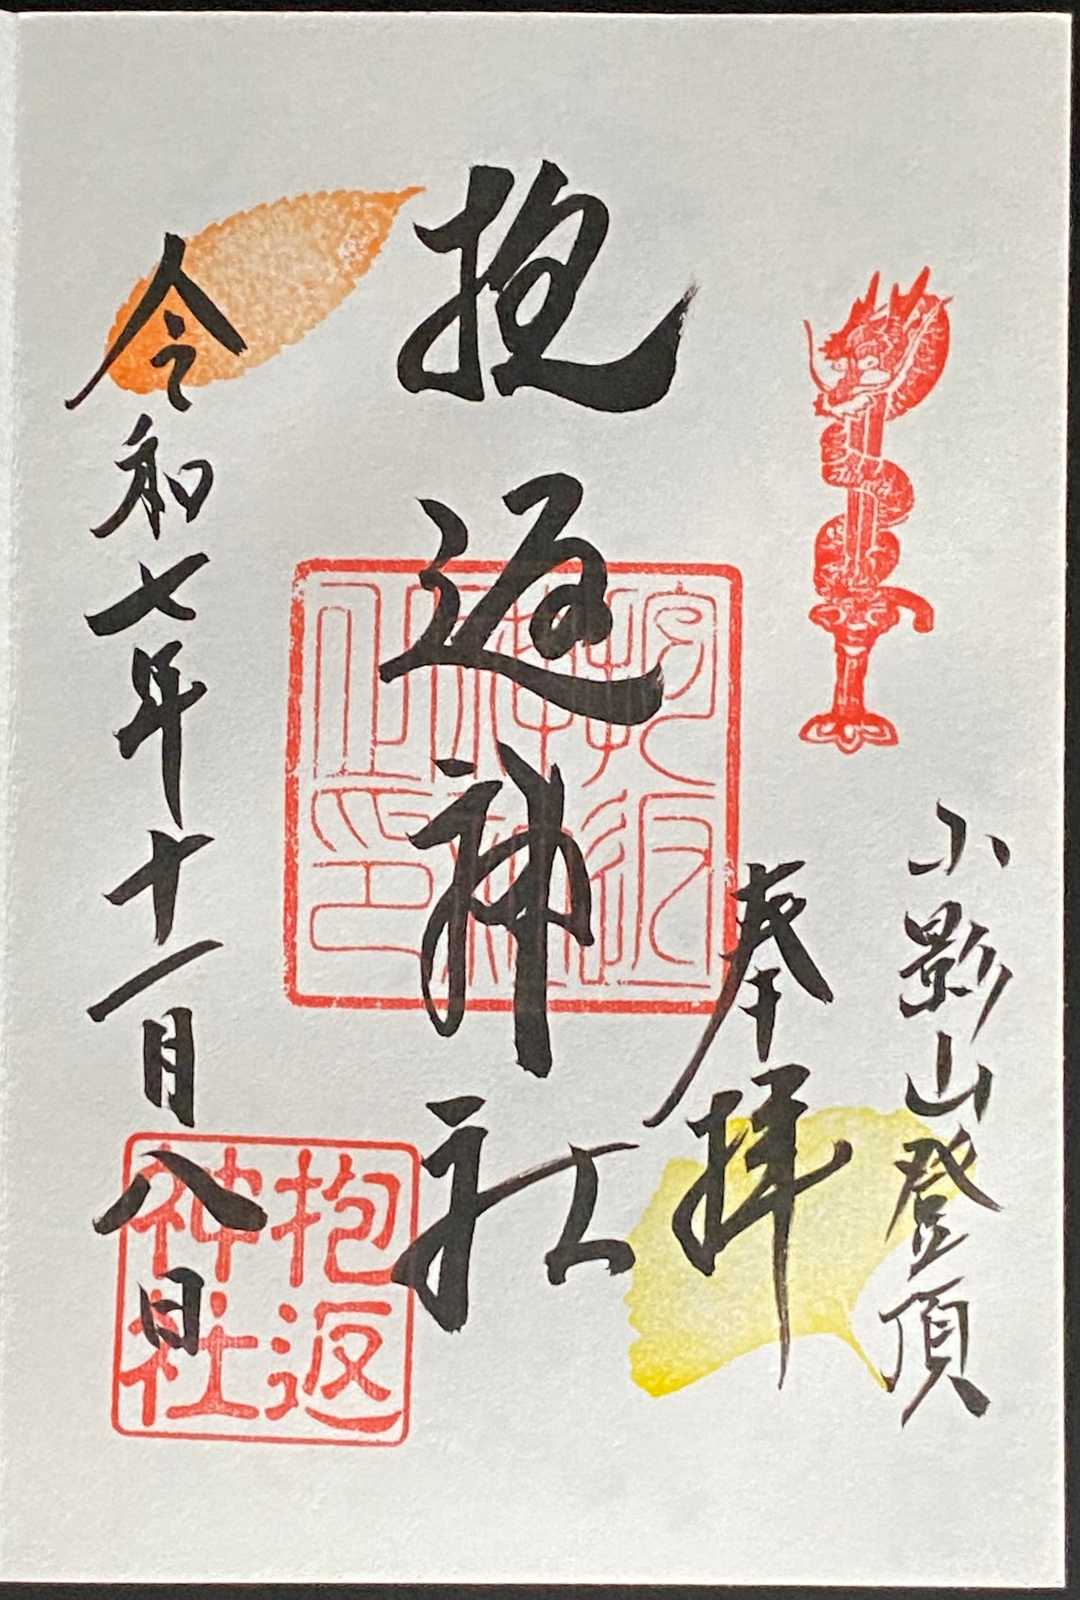 小影山登頂
奉拝
抱返神社
抱返神社印
令和七年十一月八日
抱返神社